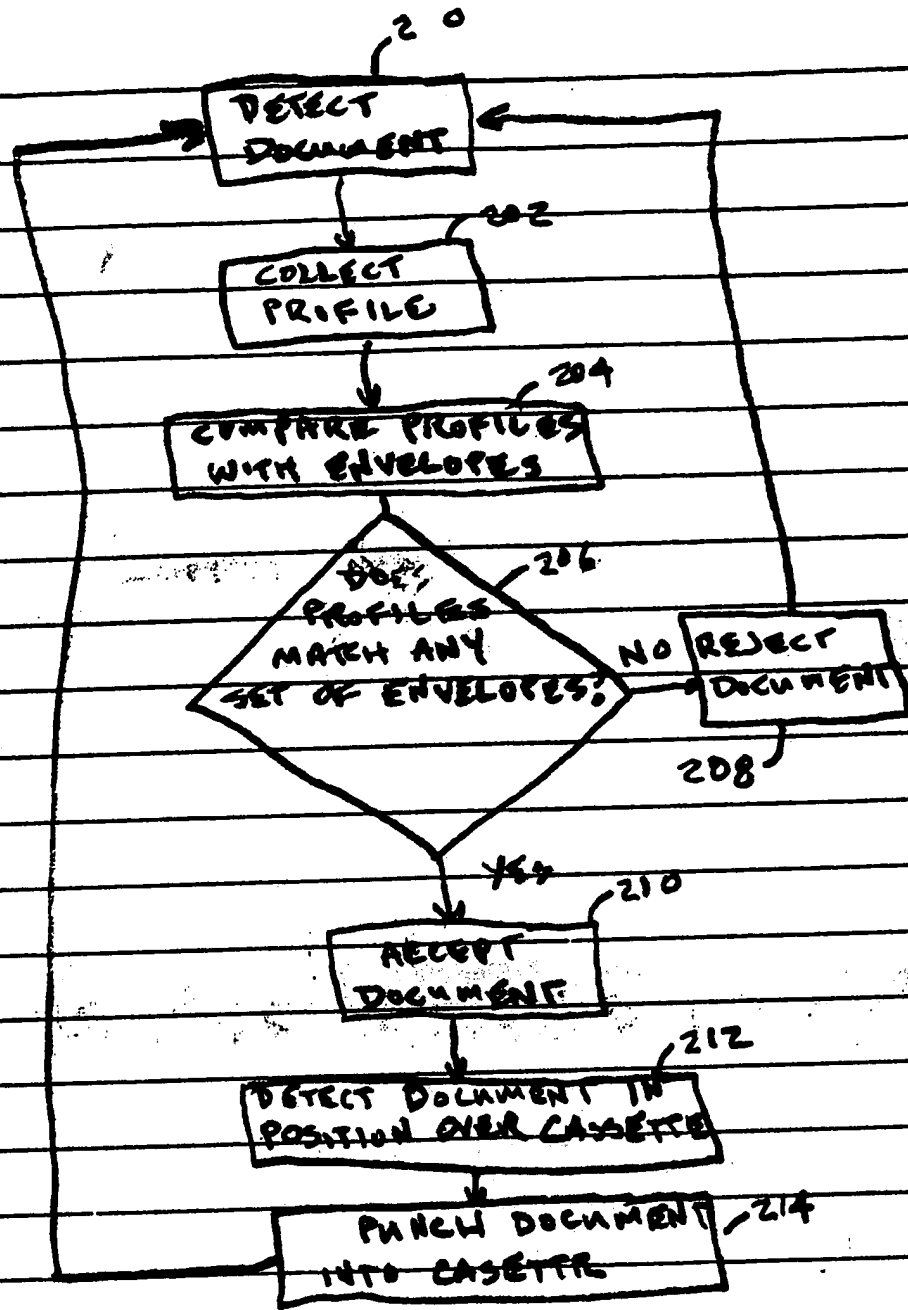 20
DETECT
DOCUMENT
202
COLLECT
PROFILE
204
COMPARE PROFILES
WITH ENVELOPES
206
DO
PROFILES
MATCH ANY
SET OF ENVELOPES?
NO
REJECT
DOCUMENT
208
YES
210
ACCEPT
DOCUMENT
212
DETECT DOCUMENT IN
POSITION OVER CASSETTE
PUNCH DOCUMENT
INTO CASETTE
214